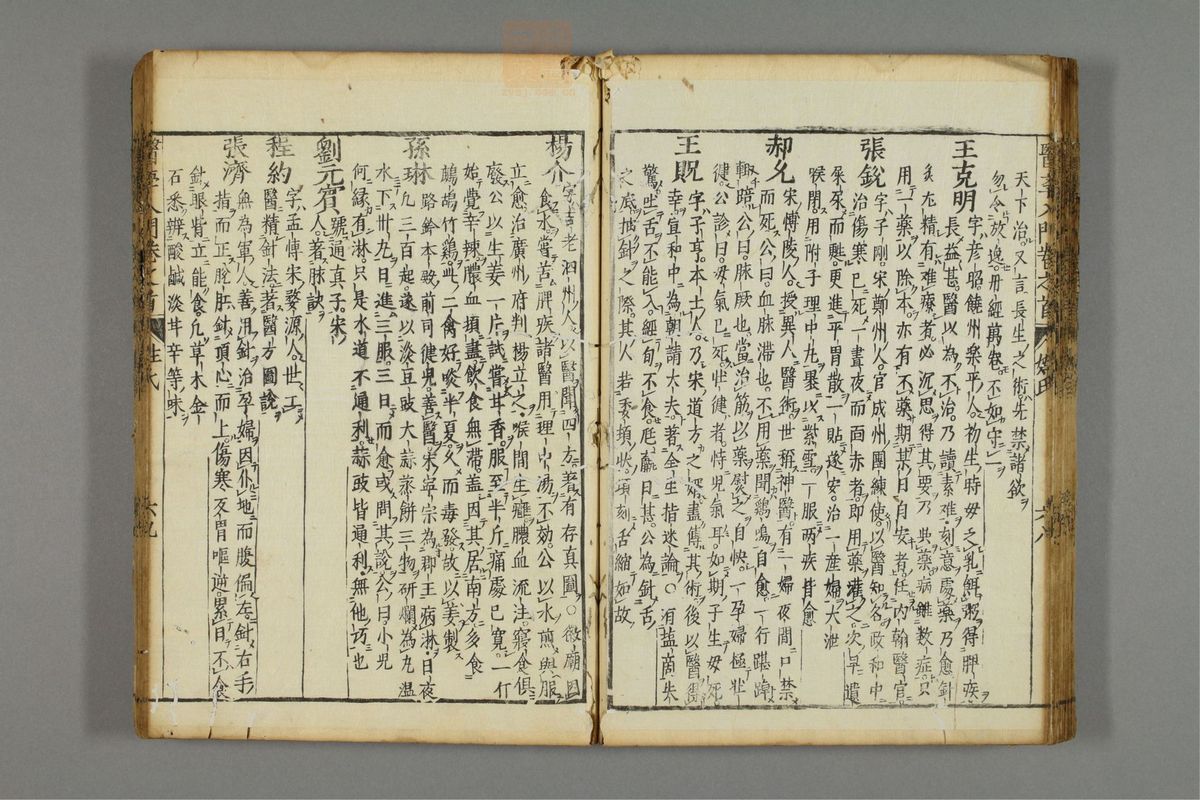 天下治又言長生之術先禁諸欲
勿令放逸丹經萬卷不如守一
王克明
字彦昭饒州樂平人初生時母之乳餌粥得脾疾
長益甚醫以為不治乃讀素難刻意處藥乃愈針
灸尤精有難療者必沉思得其要乃與藥病雖數症只
用一藥以除本亦有不藥期某日自安者任内翰醫官
張銳
字子剛宋鄭州人官成州團練使以醫知名政和中
治傷寒已死一晝夜而面赤者即用藥灌之次早遺
屎尿而甦更進平胃散一貼遂安治一産婦大泄
喉閉用附子理中丸裹以紫雪一服兩疾甘愈
郝允
宋博陵人授異人醫術世稱神醫有一婦夜間口禁
而死公曰血脉滯也不用藥聞鷄鳴自愈一行踸踔
輒踣公曰脉厥也當治筋以藥熨之自快一孕婦極壯
健公診曰母氣已死壯健者恃兒氣耳如期子生母死
王貺
字子亨本士人乃宋道方之婿盡傳其術後以醫
幸宣和中為朝請大夫著全生指迷論○有盐商失
驚吐舌不能入經旬不食尫羸日甚公為針舌
之底抽針之際其人若委頓狀頃刻舌縮如故
楊介
字吉老泗州人以醫聞四方著有存真圖○徽廟因
食氷嘗苦脾疾諸醫用理中湯不効公以氷煎與服
立愈治廣州府判楊立之喉間生癰膿血流注寢食俱
廢公以生姜一片試嘗甘香服至半斤痛處已寛一斤
始覺辛辣膿血頓盡飲食無滯盖因其居南方多食
鷓鴣竹鷄此二禽好啖半夏久而毒發故以姜製
孫琳
路鈐本殿前司健兒善醫宋寧宗為郡王病淋日夜
凡三百起遂以淡豆豉大蒜蒸餅三物研爛為丸温
水下卅九日進三服三日而愈或問其說公曰小兒
何縁有淋只是水道不通利蒜豉皆通利無他巧也
劉元賓
號通真子宋
人著脉訣
程約
字孟博宋婺源人世工
醫精針法著醫方圖說
張濟
無為軍人善用針治孕婦因仆地而腹偏左針右手
指而正脫肛針頂心而上傷寒反胃嘔逆累日不食
針眼眥立能食凡草木金
石悉辨酸鹹淡甘辛等味